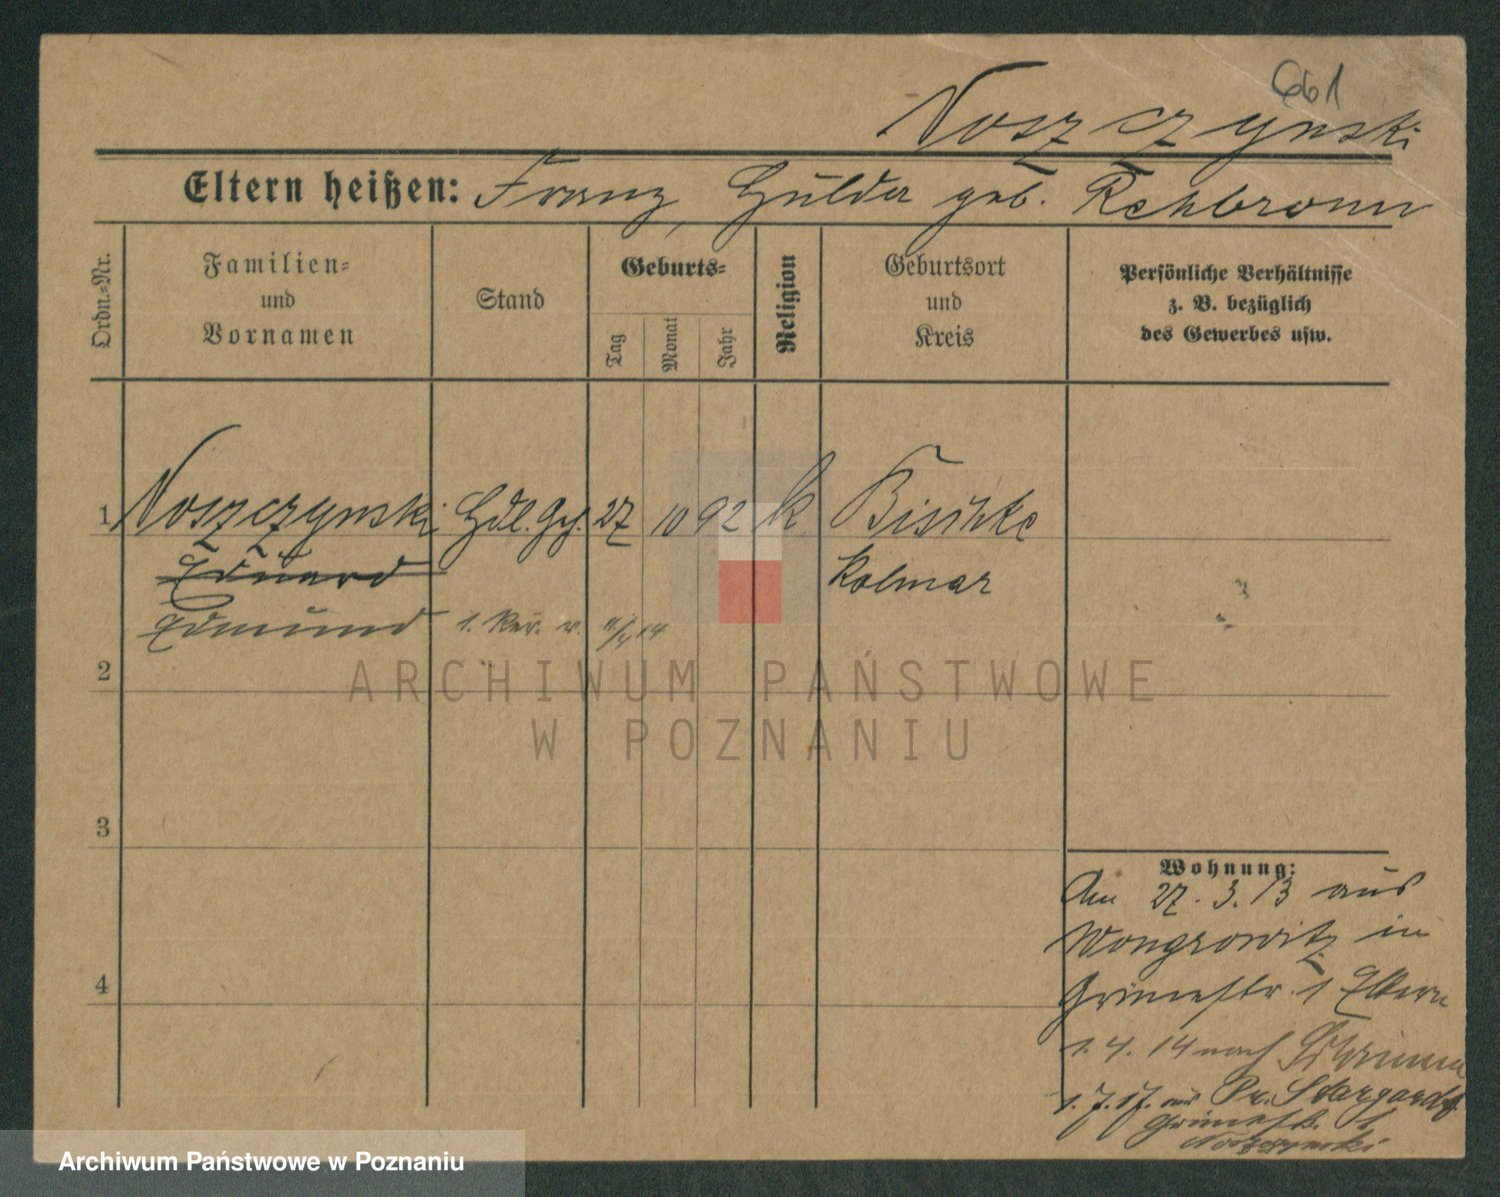 661
Noszczynski
Eltern heißen: Franz, Hulda geb. Rehbronn
Ordn.-Nr.
Familien-
und
Vornamen
Stand
Geburts-
Tag
Monat
Jahr
Religion
Geburtsort
und
Kreis
Persönliche Verhältnisse
z. B. bezüglich
des Gewerbes usw.
1 Noszczynski Hdl. Geh. 27 10 92 k Bischke
Eduard Kolmar
Edmund 1. Rev. v. 11/4 14
2
3
4
Wohnung:
Am 27.3.13 aus
Wongrowitz in
Grünestr. 1 Eltern
1.4.14 nach Schrimm
1.7.17. aus Pr. Stargardt
Grünestr. 1
Noszczynski
ARCHIWUM PAŃSTWOWE
W POZNANIU
Archiwum Państwowe w Poznaniu